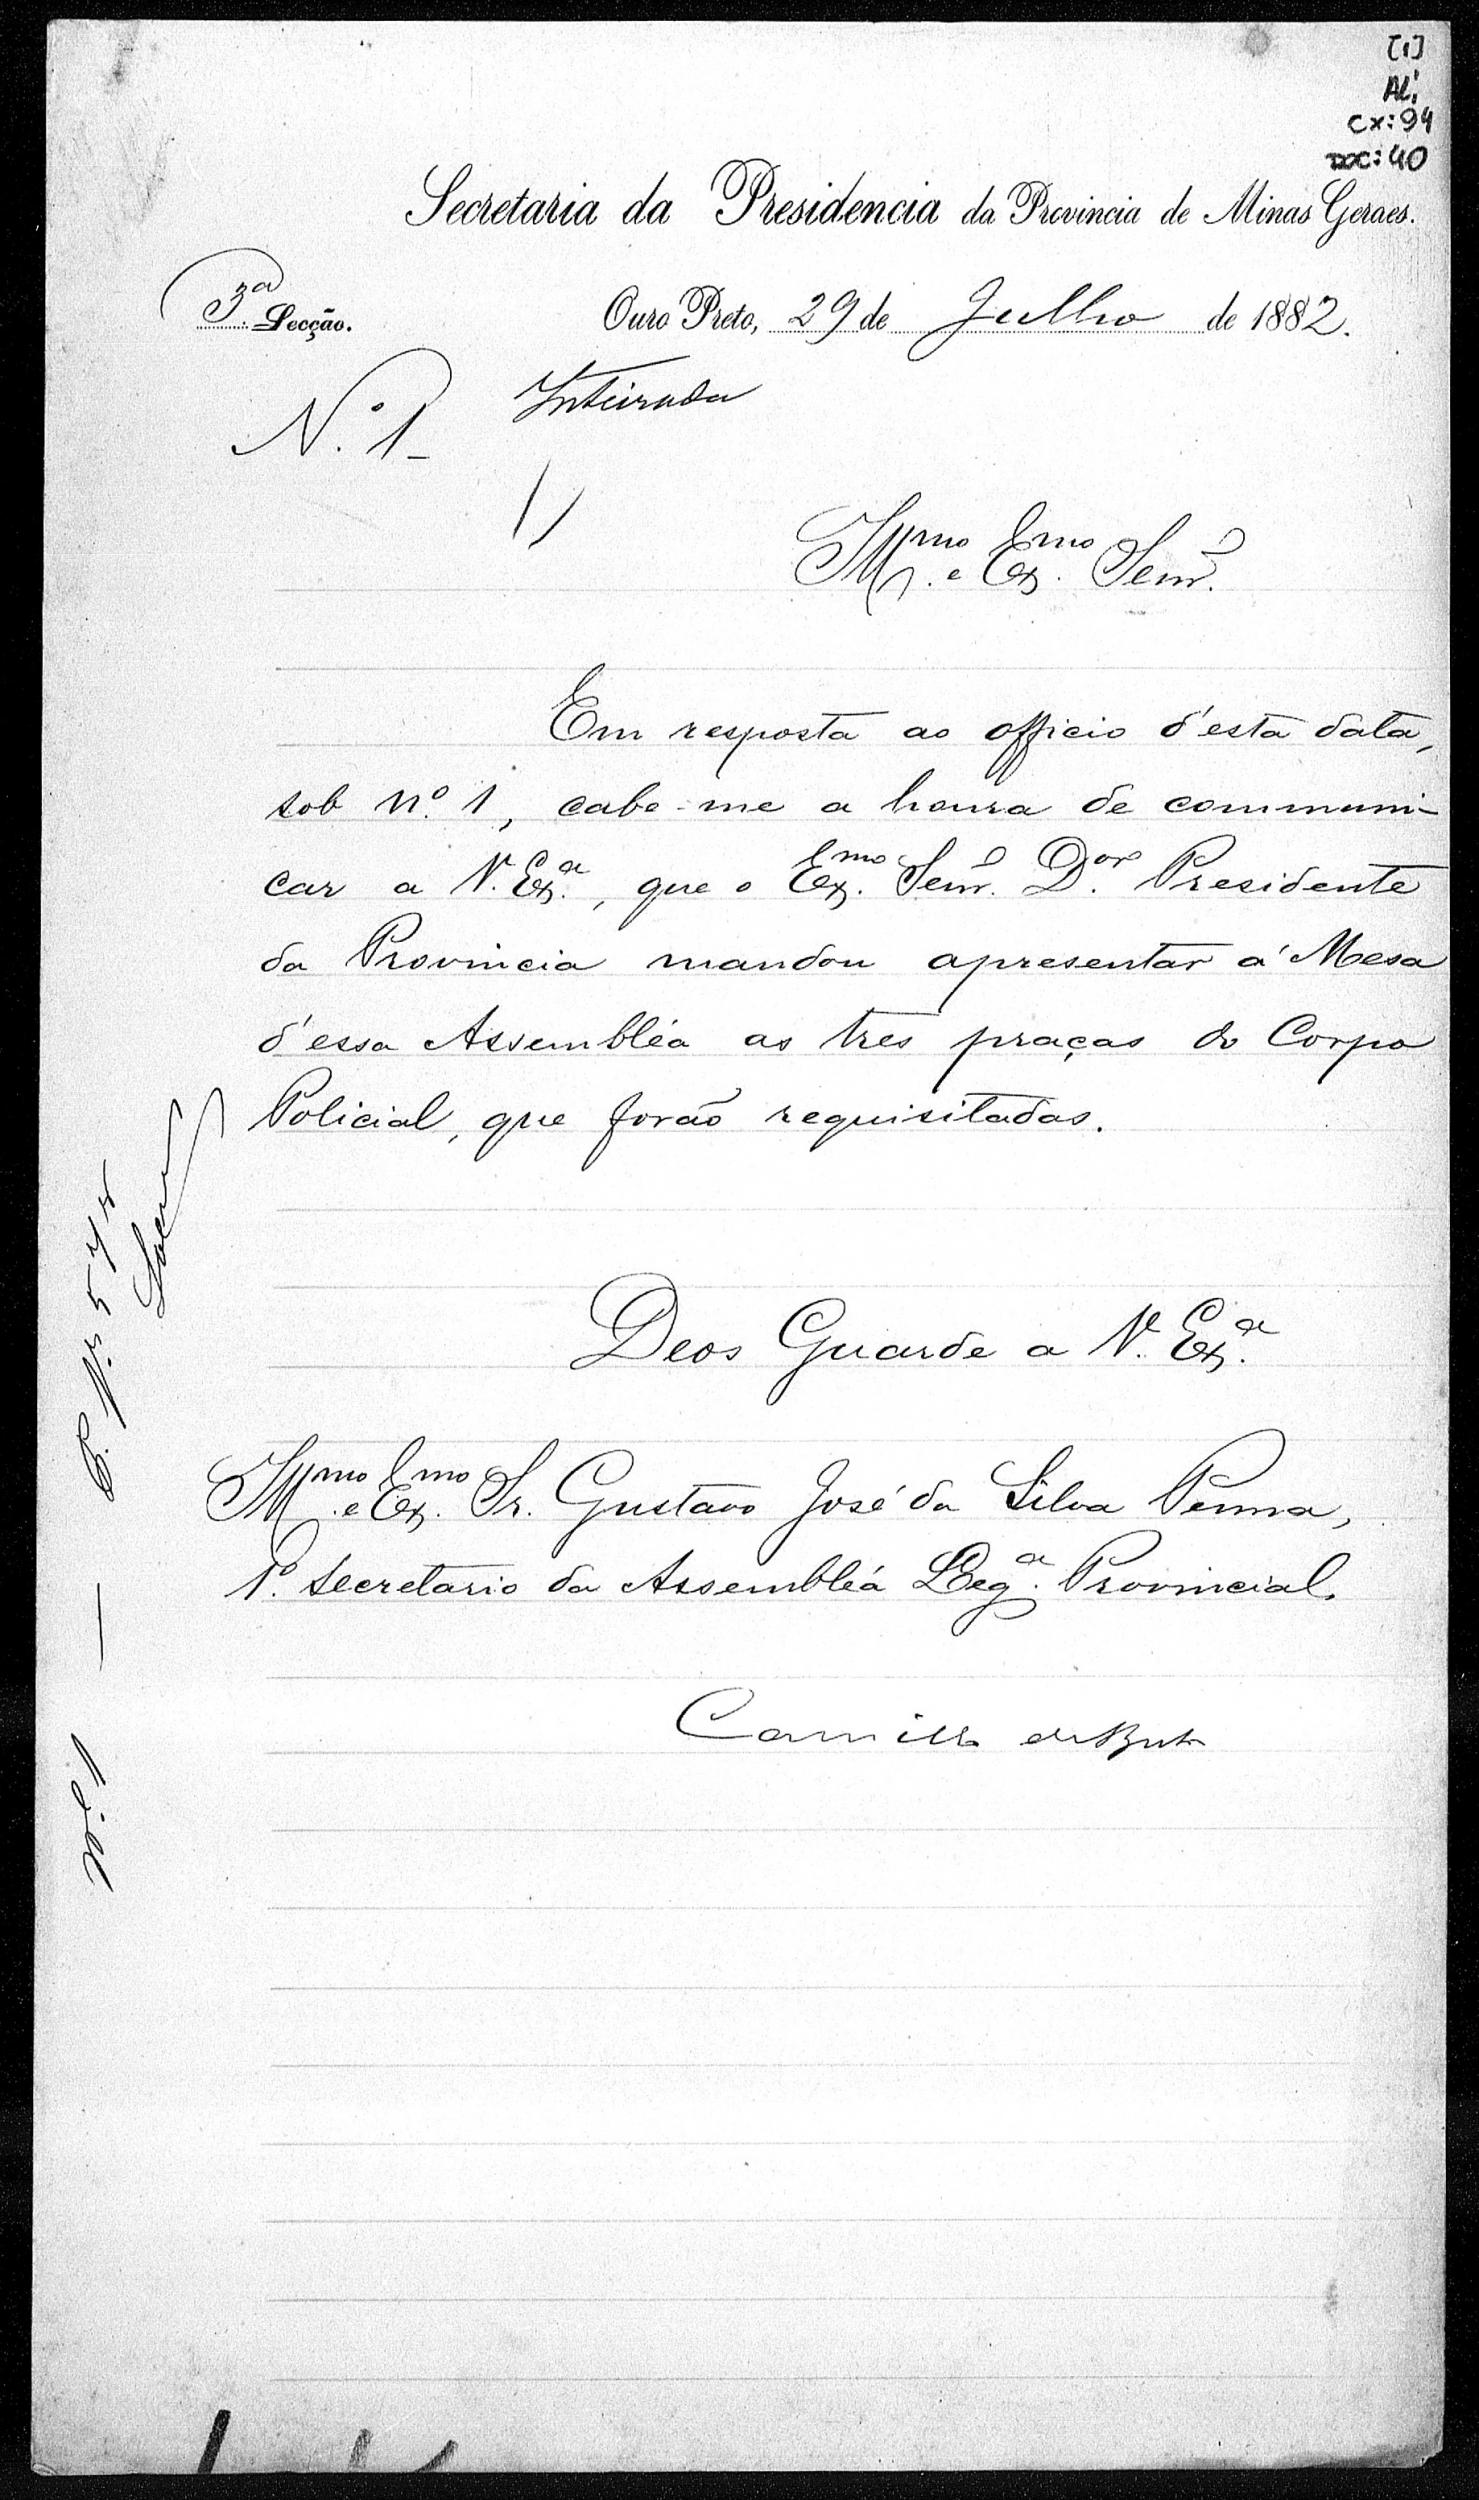 [1]
AL1
CX: 94
DOC: 40
Secretaria da Presidencia da Provincia de Minas Geraes.
3ª Secção.
Ouro Preto, 29 de Julho de 1882.
N.º 1
Inteirada
Illmo. e Exmo. Senr.
Em resposta ao officio d'esta data,
sob nº. 1, cabe-me a honra de communi-
car a V. Exª., que o Exmo. Senr. Dor. Presidente
da Provincia mandou apresentar á Mesa
d'essa Assembléa as tres praças do Corpo
Policial, que forão requisitadas.
Deos Guarde a V. Exª.
Illmo. e Exmo. Sr. Gustavo José da Silva Penna,
1º. Secretario da Assembléa Legª. Provincial.
Camillo de Brito
Nº. 1 —